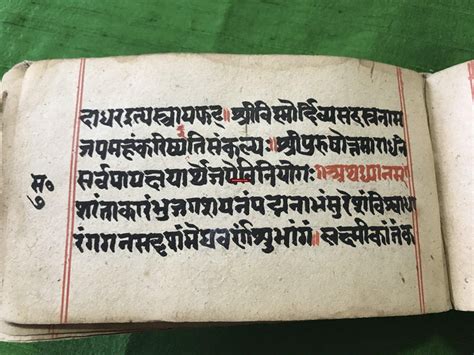 दाधरइत्यस्त्रायफट्॥श्रीविष्णोर्दिव्यसहस्रनाम
जपमहंकरिष्येतिसंकल्पः॥श्रीपुरुषोत्तमाराधने
सर्वपापक्षयार्थेजपेविनियोगः॥अथध्यानम्॥
शांताकारंभुजगशयनंपद्मनाभंसुरेशंविश्वाधा
रंगगनसदृशंमेघवर्णंशुभांगं॥लक्ष्मीकांतंक